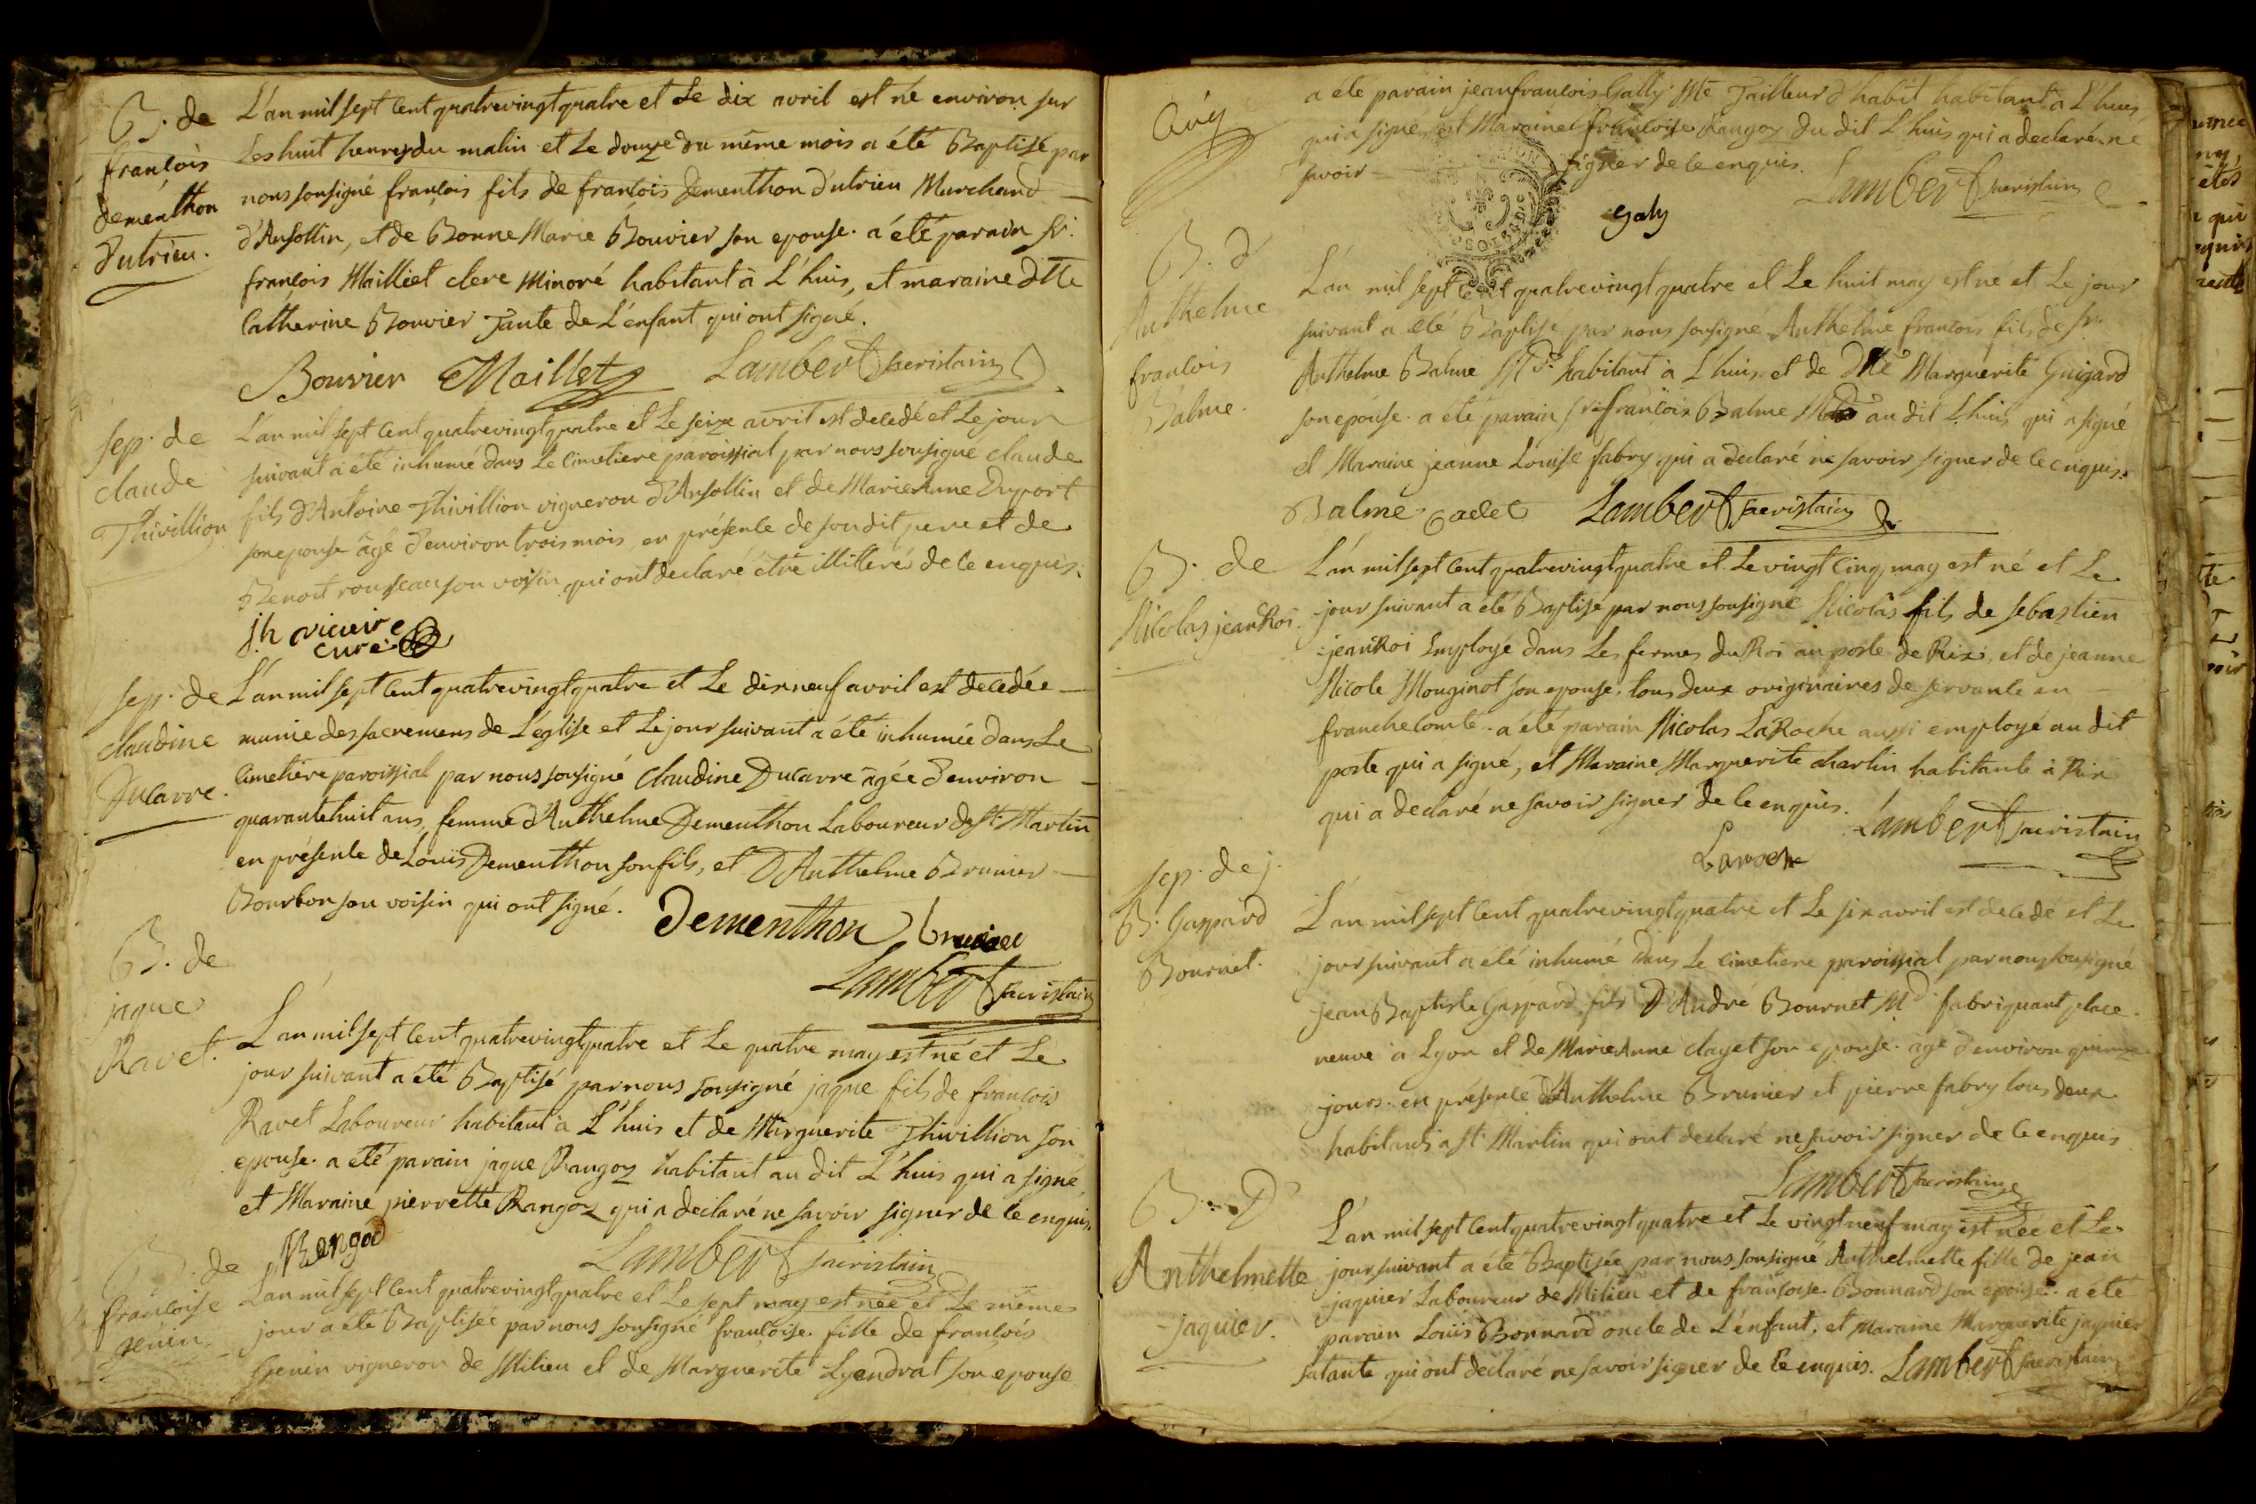 B. de
françois
dementhon
d'utrieu.
L'an mil sept cent quatrevingt quatre et Le dix avril est né environ sur
Les huit heures du matin et Le douze du même mois a été Baptisé par
nous soussigné françois fils de françois Dementhon d'utrieu Marchand
d'Ansollin, et de Bonne Marie Bouvier son epouse. a été parain sr.
françois Mailliet clerc Minoré habitant à L'huis, et maraine dlle
Catherine Bouvier Tante de L'enfant qui ont signé.
Bouvier Maillet Lambert sacristain
sep. de
claude
Thivillion
L'an mil sept cent quatrevingt quatre et Le seize avril est decedé et Le jour
suivant a été inhumé dans Le cimetiere paroissial par nous soussigné claude
fils d'Antoine Thivillion vigneron d'Ansollin et de Marie Anne Duport
son epouse âgé d'environ trois mois, en présence de son dit pere et de
Benoit rousseau son voisin qui ont declaré être illitteré de ce enquis.
curé
sep. de
claudine
Ducarre.
L'an mil sept cent quatrevingt quatre et Le dixneuf avril est decedée
munie des sacremens de L'église et Le jour suivant a été inhumée dans Le
Cimetière paroissial par nous soussigné Claudine Ducarre âgée d'environ
quarante huit ans, femme d'Anthelme Dementhon Laboureur de St. Martin
en présence de Louis Dementhon son fils, et D'Anthelme Brunier
Bourbon son voisin qui ont signé.
Dementhon Brunier
Lambert sacristain
B. de
jaque
Ravet.
L'an mil sept cent quatrevingt quatre et Le quatre may est né et Le
jour suivant a été Baptisé par nous soussigné jaque fils de françois
Ravet Laboureur habitant à L'huis et de Marguerite Thivillion son
epouse. a été parain jaque Rangoz habitant au dit L'huis qui a signé,
et Maraine pierrette Rangoz qui a declaré ne savoir signer de ce enquis.
Rangod Lambert sacristain
B. de
françoise
genin
L'an mil sept cent quatrevingt quatre et Le sept may est née et Le même
jour a été Baptisée par nous soussigné françoise. fille de françois
Genin vigneron de Millieu et de Marguerite Lyendrat son epouse
a été parain jean françois Gally Me Tailleur d'habit habitant à L'huis
qui a signé, et Maraine françoise Rangoz du dit L'huis qui a declaré ne
savoir signer de ce enquis.
Lambert sacristain
galy
B. d'
Anthelme
françois
Balme.
L'an mil sept cent quatrevingt quatre et Le huit may est né et Le jour
suivant a été Baptisé par nous soussigné Anthelme françois fils de sr.
Anthelme Balme Md. habitant à L'huis et de dlle Marguerite Guigard
son epouse. a été parain sr. françois Balme Md au dit L'huis, qui a signé
et Maraine jeanne Louise fabry qui a declaré ne savoir signer de ce enquis.
Balme cadet Lambert sacristain
B. de
Nicolas jeanRoi.
L'an mil sept cent quatrevingt quatre et Le vingt cinq may est né et Le
jour suivant a été Baptisé par nous soussigné Nicolas fils de sebastien
jeanRoi Employé dans Les fermes du Roi au poste de Rix, et de jeanne
Nicole Mouginot son epouse. tous deux originaires de servante en
franchecomte. a été parain Nicolas LaRoche aussi employé au dit
poste qui a signé, et Maraine Marguerite charlin habitante à Rix
qui a declaré ne savoir signer de ce enquis.
Lambert sacristain
Laroche
sep. de j.
B. Gaspard
Bournet.
L'an mil sept cent quatrevingt quatre et Le six avril est decedé et Le
jour suivant a été inhumé dans Le cimetiere paroissial par nous soussigné
jean Baptiste Gaspard, fils D'André Bournet Md. fabriquant place
neuve à Lyon et de Marie Anne clayet son epouse. agé d'environ quinze
jours. en présence d'Anthelme Brunier et pierre fabry tous deux
habitants a st. Martin qui ont declaré ne savoir signer de ce enquis
Lambert sacristain
B. D'
Anthelmette
jaquier.
L'an mil sept cent quatrevingt quatre et Le vingt neuf may est née et Le
jour suivant a été Baptisée par nous soussigné Anthelmette fille de jean
jaquier Laboureur de Millieu et de françoise Bonnard son epouse. a été
parain Louis Bonnard oncle de L'enfant, et maraine Marguerite jaquier
sa tante qui ont declaré ne savoir signer de ce enquis. Lambert sacristain